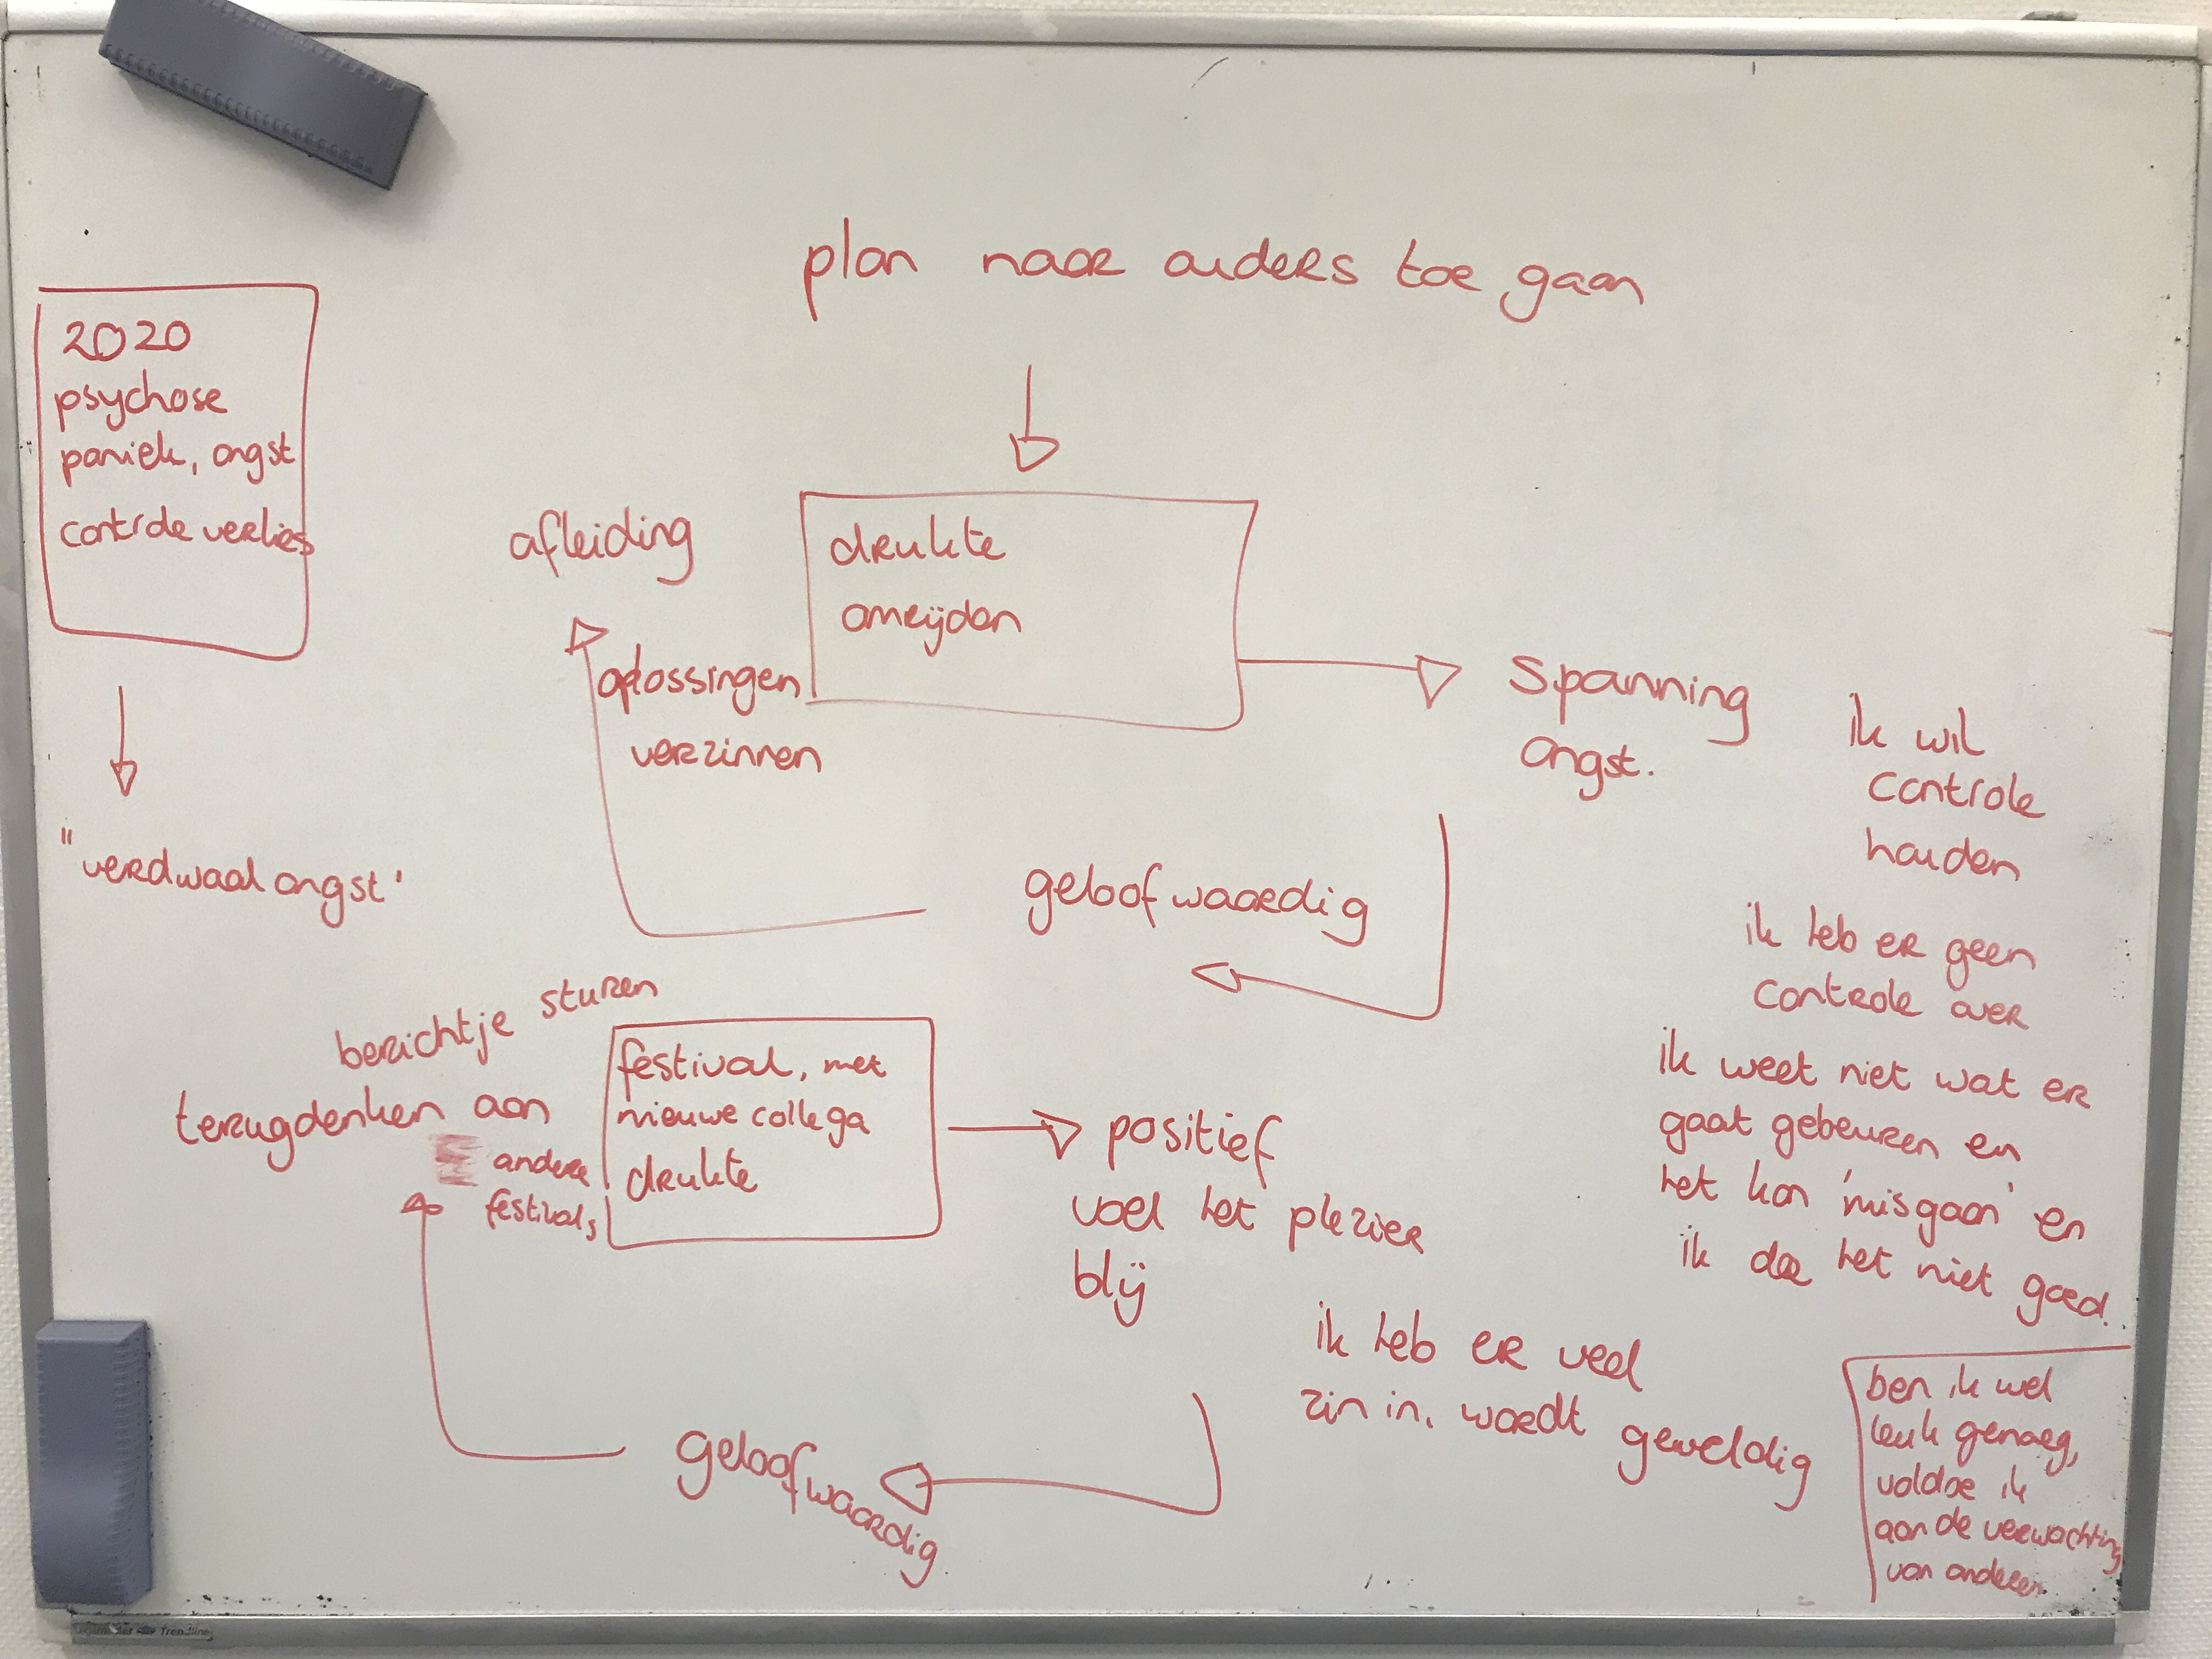 plan naar ouders toe gaan
2020
psychose
paniek, angst
controle verlies
"verdwaal angst'
afleiding
oplossingen
verzinnen
drukte
omeijden
Spanning
angst.
ik wil
controle
houden
ik heb er geen
controle over
ik weet niet wat er
gaat gebeuren en
het kan 'misgaan' en
ik doe het niet goed.
geloofwaardig
berichtje sturen
terugdenken aan
andere
festivals
festival, met
nieuwe collega
drukte
positief
voel het plezier
blij
ik heb er veel
zin in, wordt geweldig
geloofwaardig
ben ik wel
leuk genoeg,
voldoe ik
aan de verwachting
van anderen